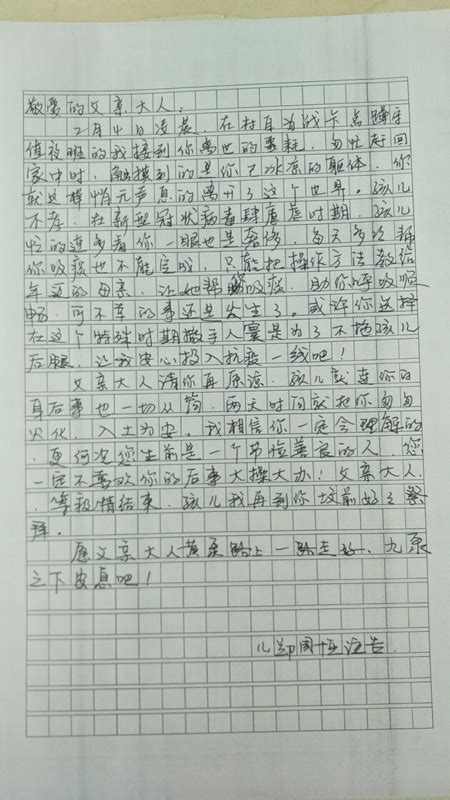 敬爱的父亲大人：
2月4日凌晨，在村自为战卡点蹲守
值夜班的我接到你离世的噩耗，匆忙赶回
家中时，触摸到的是你已冰凉的躯体，你
就这样悄无声息的离开了这个世界。孩儿
不孝，在新型冠状病毒肆虐时期，孩儿
忙的连多看你一眼也是奢侈，每天多次帮
你吸痰也不能完成，只能把操作方法教给
年迈的母亲，让她帮你吸痰，助你呼吸顺
畅，可不幸的事还是发生了。或许你选择
在这个特殊时期撒手人寰是为了不拖孩儿
后腿，让我安心投入抗疫一线吧！
父亲大人请你再原谅，孩儿就连你的
身后事也一切从简，两天时间就把你匆匆
火化，入土为安。我相信你一定会理解的
，更何况您生前是一个节俭善良的人，您
一定不喜欢你的后事大操大办！父亲大人
，等疫情结束，孩儿我再到你坟前好好祭
拜。
愿父亲大人黄泉路上一路走好，九泉
之下安息吧！
儿 国恒泣告